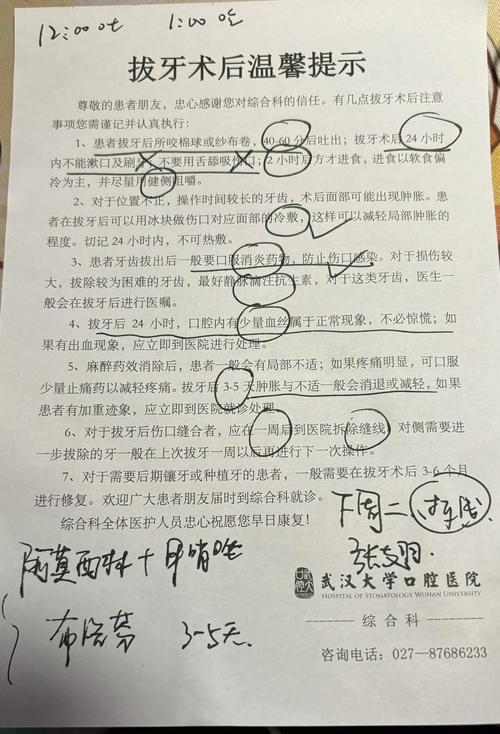 12:00吐 1:00吃
拔牙术后温馨提示
尊敬的患者朋友，忠心感谢您对综合科的信任。有几点拔牙术后注意
事项您需谨记并认真执行：
1、患者拔牙后所咬棉球或纱布卷，40-60分后吐出；拔牙术后24小时
内不能漱口及刷牙，不要用舌舔吸伤口；2小时后方才进食，进食以软食偏
冷为主，并尽量用健侧咀嚼。
2、对于位置不正，操作时间较长的牙齿，术后面部可能出现肿胀。患
者在拔牙后可以用冰块做伤口对应面部的冷敷，这样可以减轻局部肿胀的
程度。切记24小时内，不可热敷。
3、患者牙齿拔出后一般要口服消炎药物，防止伤口感染。对于损伤较
大，拔除较为困难的牙齿，最好静脉滴注抗生素，对于这类牙齿，医生一
般会在拔牙后进行医嘱。
4、拔牙后24小时，口腔内有少量血丝属于正常现象，不必惊慌；如
果有出血现象，应立即到医院进行处理。
5、麻醉药效消除后，患者一般会有局部不适；如果疼痛明显，可口服
少量止痛药以减轻疼痛。拔牙后3-5天肿胀与不适一般会消退或减轻，如果
患者有加重迹象，应立即到医院就诊处理。
6、对于拔牙后伤口缝合者，应在一周后到医院拆除缝线，对侧需要进
一步拔除的牙一般在上次拔牙一周以后再进行下一次操作。
7、对于需要后期镶牙或种植牙的患者，一般需要在拔牙术后3-6个月
进行修复。欢迎广大患者朋友届时到综合科就诊。
综合科全体医护人员忠心祝愿您早日康复！
下周二
阿莫西林+甲硝唑
武汉大学口腔医院
HOSPITAL OF STOMATOLOGY WUHAN UNIVERSITY
布洛芬 3-5天
综合科
咨询电话：027—87686233